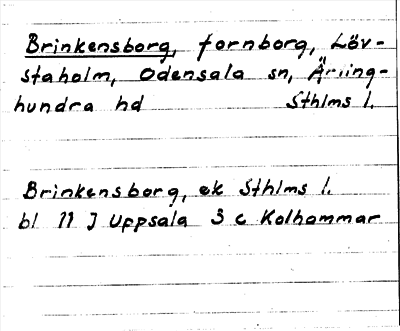 Brinkensborg, fornborg, Löv-
staholm, Odensala sn, Ärling-
hundra hd Sthlms l.
Brinkensborg, ek Sthlms l.
bl 11 J Uppsala 3 c Kolhammar